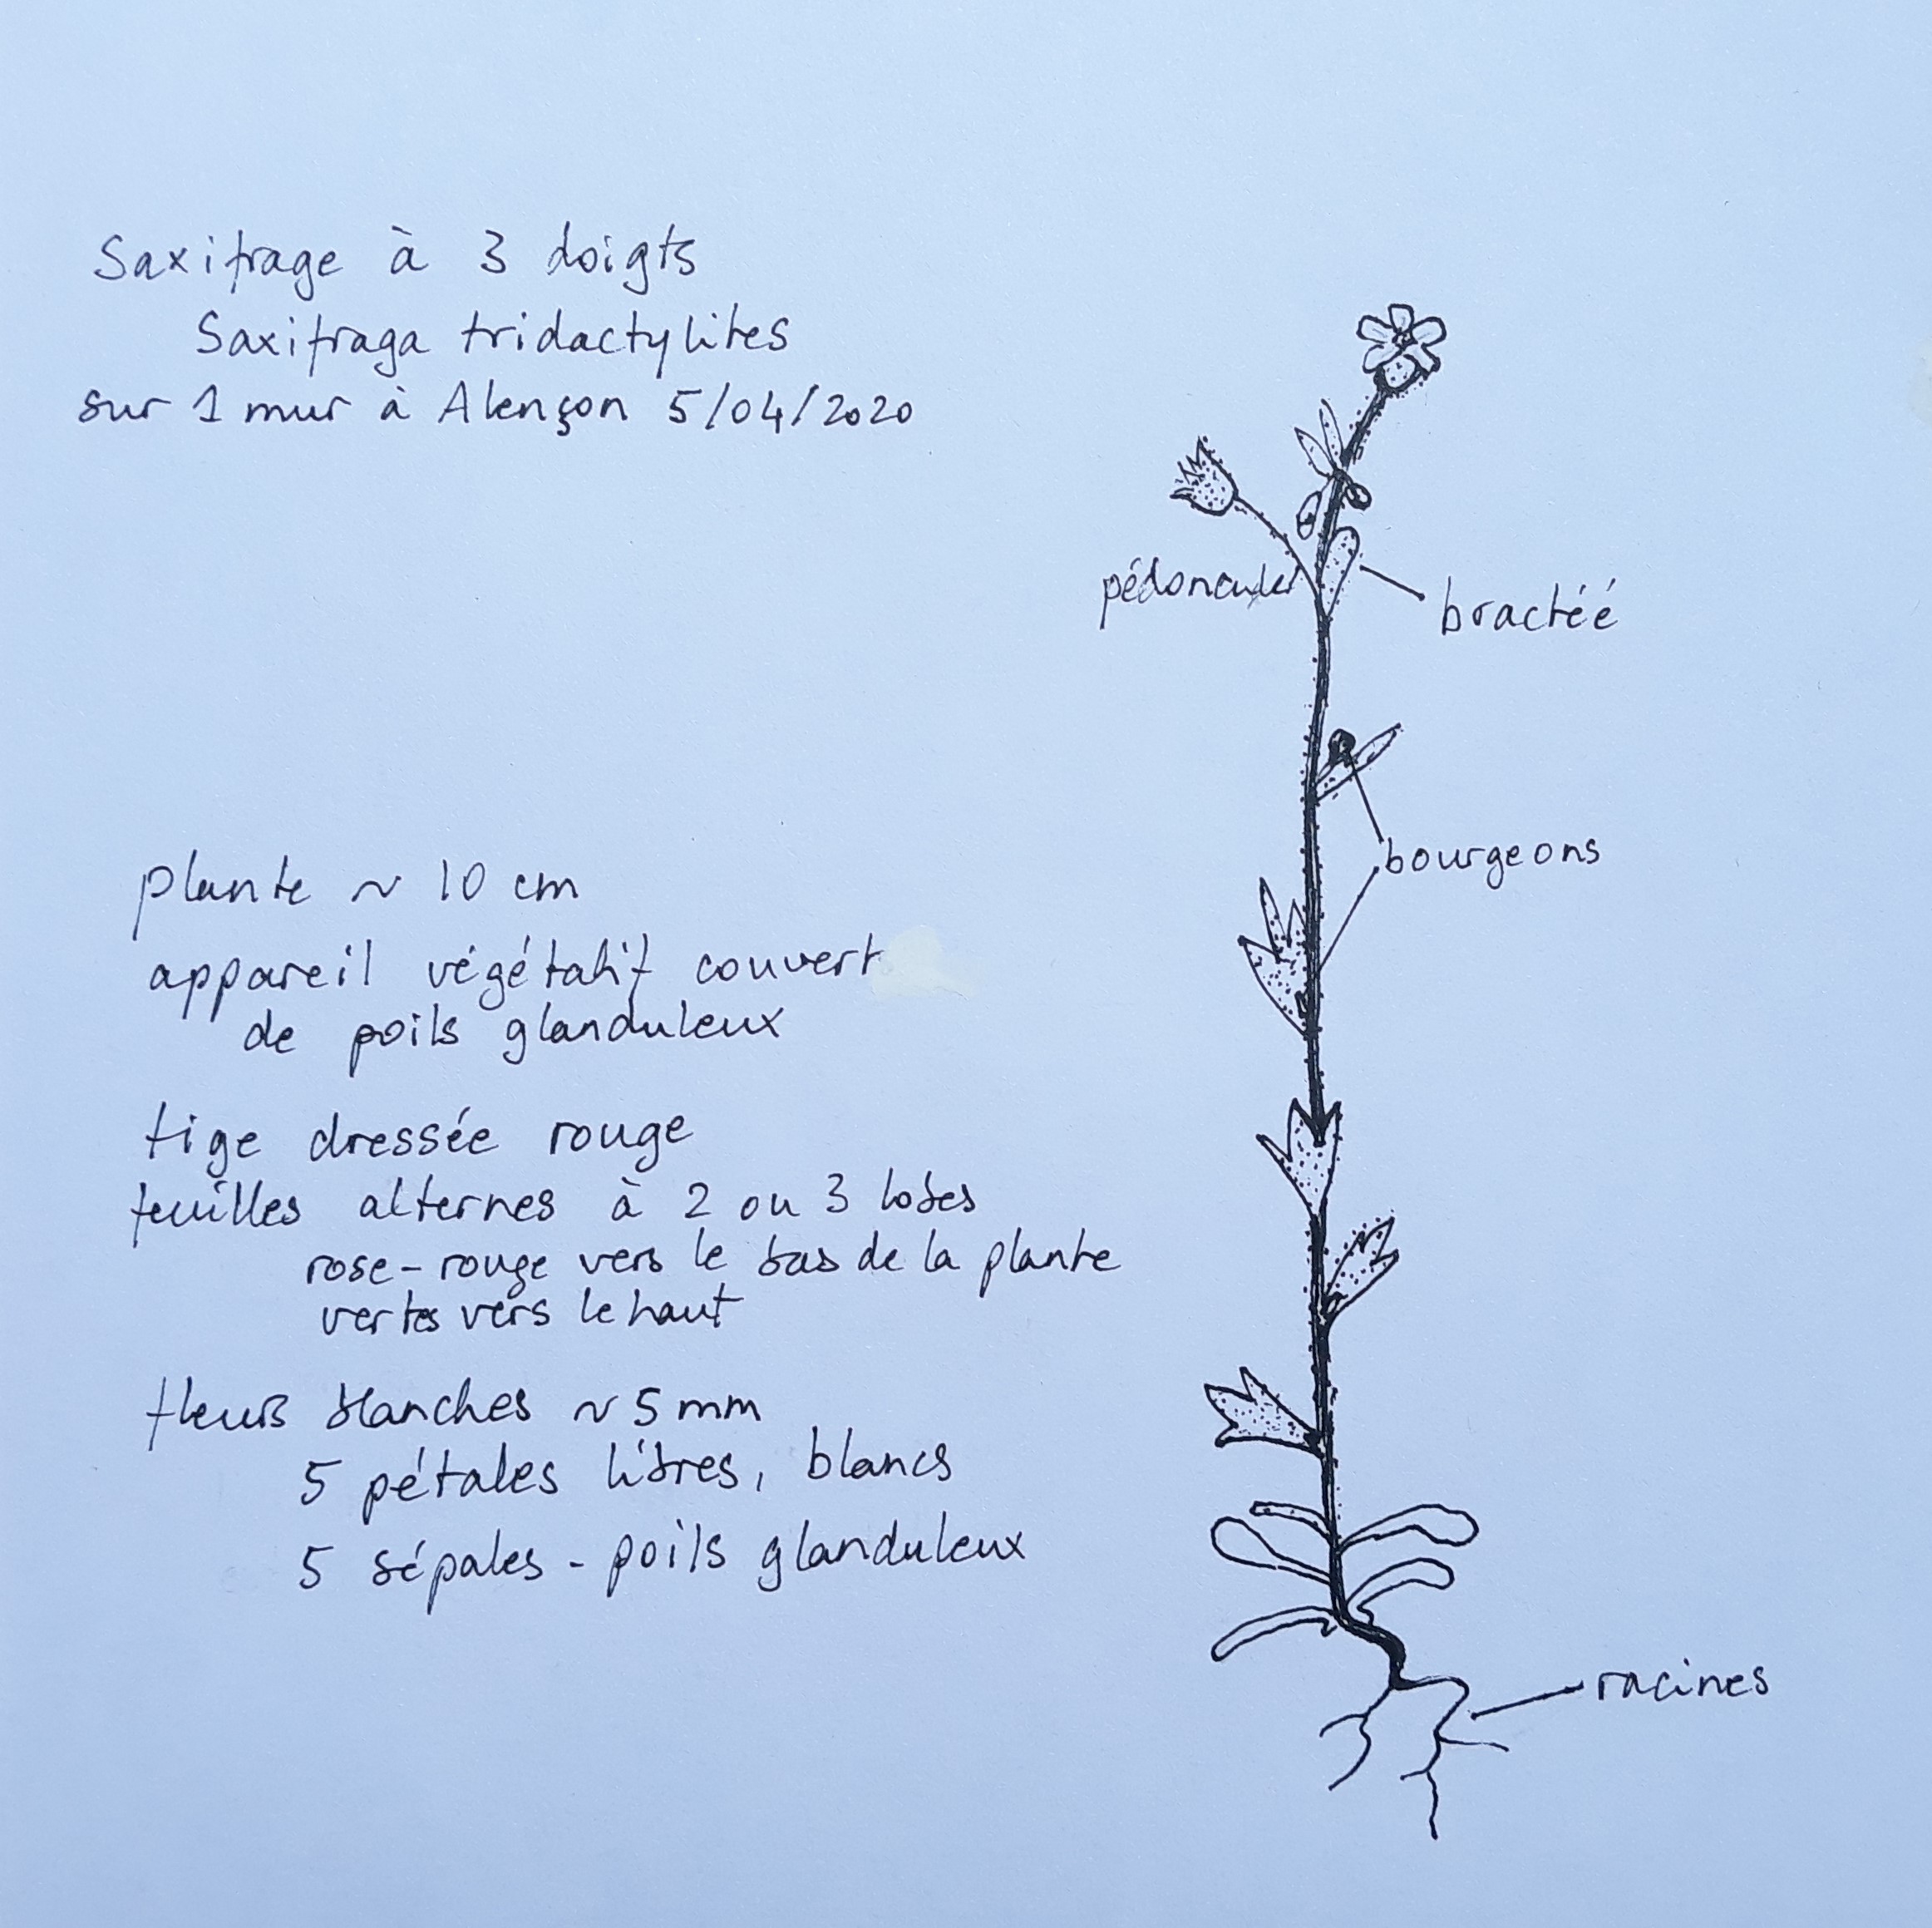 Saxifrage à 3 doigts
Saxifraga tridactylites
sur 1 mur à Alençon 5/04/2020
pédoncule
bractéé
bourgeons
plante ~ 10 cm
appareil végétatif couvert
de poils glanduleux
tige dressée rouge
feuilles alternes à 2 ou 3 lobes
rose-rouge vers le bas de la plante
vertes vers le haut
fleurs blanches ~ 5 mm
5 pétales libres, blancs
5 sépales - poils glanduleux
racines